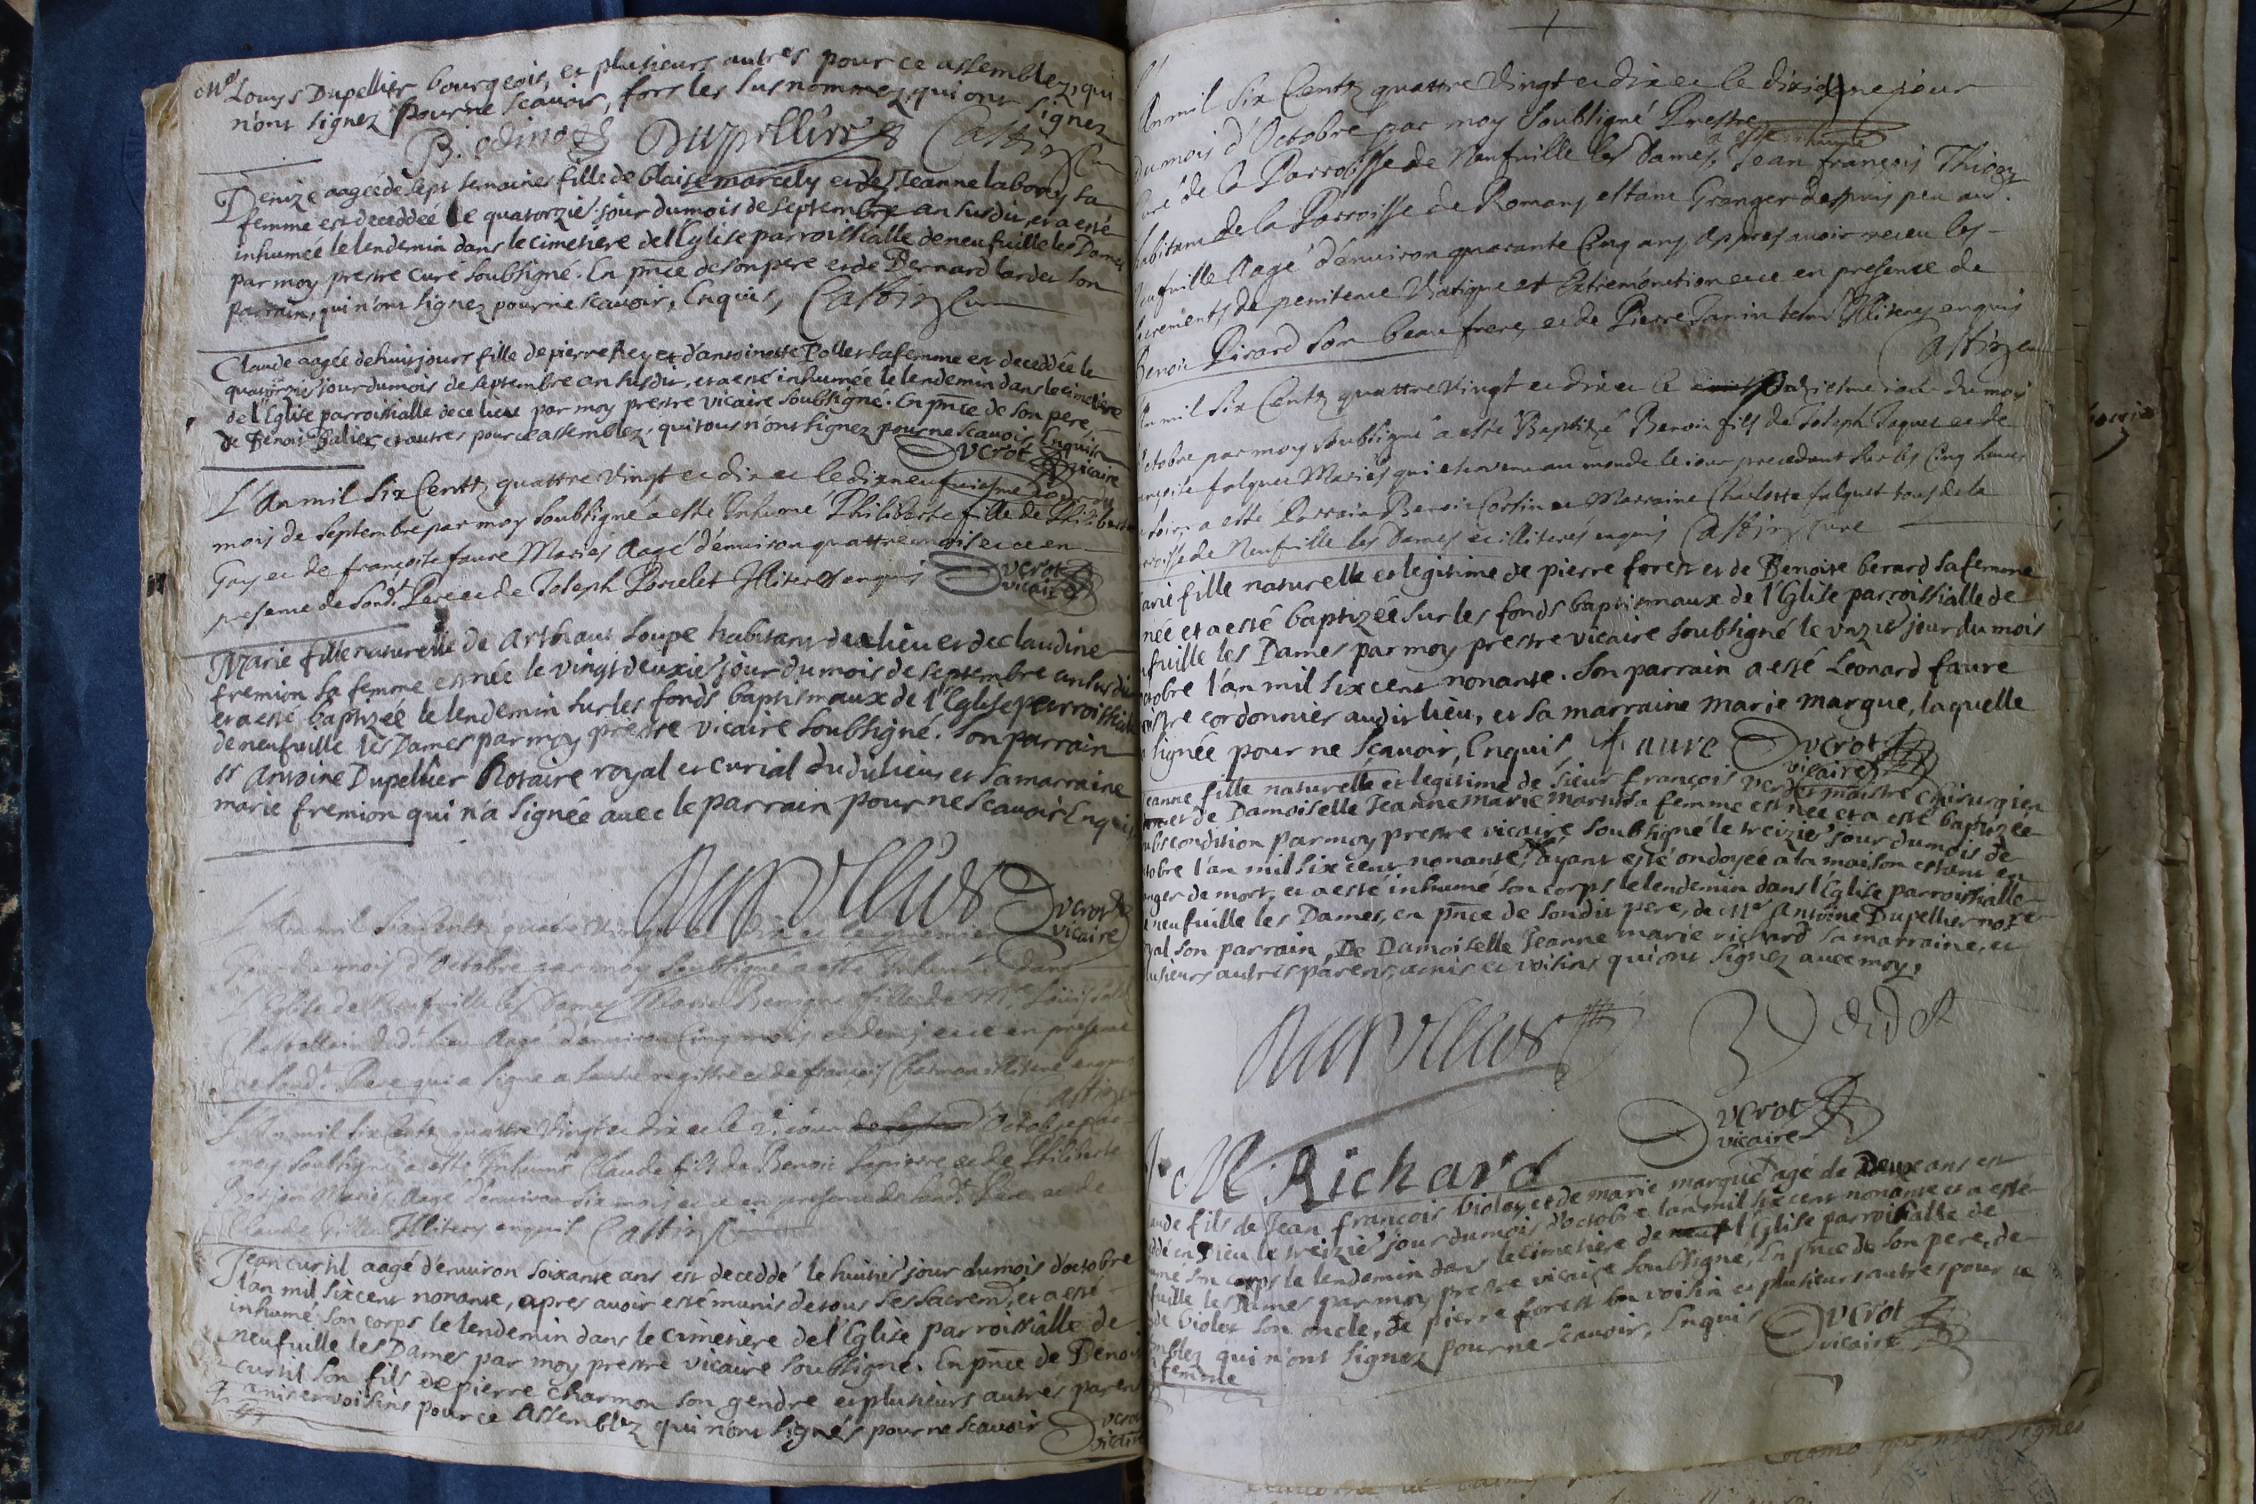 Mre Louys Dupellier bourgeois, et plusieurs autres pour ce assemblez, qui
n'ont signez pour ne scavoir, fors les susnommez, qui ont signez
Dupellier Castin Curé
Denize aagée de sept semaines fille de blaise marcely et de Jeanne labory sa
femme est deceddée le quatorzie. jour du mois de septembre an susdit, et a esté
inhumée le lendemin dans le cimetiere de l'Eglise parroissialle de neufuille les Dames
par moy prestre curé soubsigné. En pnce de son pere et de Bernard lardet son
parrain, qui n'ont signez pour ne scavoir, Enquis, Castin Curé
Claude aagée de huit jours fille de pierre Rey et d'antoinette Pollet sa femme est decedée le
quatorzie jour du mois de septembre an susdit, et a esté inhumée le lendemin dans le cimetiere
de l'Eglise parroissialle de ce lieu par moy prestre vicaire soubsigné. En pnce de son pere,
de Benoit Galier, et autres pour ce assemblez, qui tous n'ont signez pour ne scavoir Enquis
Ducrot vicaire
L'An mil Six Centz quattre vingt et dix et le dix neufuiesme Jour du
mois de Septembre par moy soubsigné a esté Inhumé Philiberte fille de Philibert
Guy et de françoise faure Mariés Aagé d'enuiron quattre mois et ce en
presence de sond. Pere et de Joseph Porcelet Illiteres enquis Ducrot
vicaire
Marie fille naturelle de Arthaut Loupe habitant du lieu et de claudine
fremion sa femme est née le vingt deuxie jour du mois de septembre an susdit
et a esté baptizée le lendemin sur les fonds baptismaux de l'Eglise parroissialle
de neufuille les Dames par moy prestre vicaire soubsigné. Son parrain
sr Antoine Dupellier Notaire royal et curial dudit lieu et sa marraine
marie fremion qui n'a signée auec le parrain pour ne scavoir Enquis
Dupellier Ducrot
vicaire
L'An mil Six centz quatre vingt et dix et le premier
Jour du mois d'Octobre par moy soubsigné a esté Inhumée dans
L'Eglise de Neufuille les Dames Marie Benigne fille de Mre Louis
Chastellain dud. lieu Aagé d'enuiron Cinq mois et demj et ce en presence
de sond. Pere qui a signé a l'autre registre et de françois Charmon illiteré enquis
Castin
L'An mil six Centz quattre Vingt et dix et le 2e jour de Septemb Octobre par
moy soubsigné a esté Inhumé Claude fils de Benoit Lapierre et de Philiberte
Bonjon Mariés Aagé d'enuiron six mois et ce en presence de sond. Pere et de
Claude Gillet Illiteres enquis Castin
Jean curtil aagé d'enuiron soixante ans est decedé le huitie jour du mois d'octobre
l'an mil sixcent nonante, apres auoir esté munis de tous ses sacrem. et a esté
inhumé son corps le lendemin dans le cimetiere de l'Eglise parroissialle de
neufuille les Dames par moy prestre vicaire soubsigné. En pnce de Benoit
curtil son fils de pierre charmon son gendre et plusieurs autres parens
amis et voisins pour ce assemblez qui n'ont signés pour ne scavoir Ducrot
vicaire
An mil Six Centz quattre Vingt et dix et le dixiesme jour
du mois d'Octobre par moy soubsigné Prestre
a esté inhumé
curé de la Parroisse de Neufuille les Dames, Jean françois
habitant de la Parroisse de Romans estant Granger despuis peu au
neufuille Aagé d'enuiron quarante Cinq ans apres auoir receu les
sacrements de penitence Viatique et Extremonction et ce en presence de
Benoit Pirard son beau frere, et de Pierre Janin Illiteres enquis
Castin curé
An mil Six Centz quattre Vingt et dix et le Onziesme iour du mois
octobre par moy soubsigné a esté Baptizé Benoit fils de Joseph Jaquet et de
françoise falquet Mariés qui est venu au monde le iour precedant sur les Cinq heures
du soir, a esté Parrain Benoit Cortin et Marraine Charlotte falquet tous de la
parroisse de Neufuille les Dames et illiterés enquis Castin Curé
Marie fille naturelle et legitime de pierre forest et de Benoite berard sa femme
née et a esté baptizée sur les fonds baptismaux de l'Eglise parroissialle de
neufuille les Dames par moy prestre vicaire soubsigné le vnzie jour du mois
octobre l'an mil sixcent nonante. Son parrain a esté Leonard faure
maistre cordonnier audit lieu, et sa marraine marie margue, laquelle
signée pour ne scavoir, Enquis, Faure Ducrot
vicaire
Jeanne fille naturelle et legitime de sieur françois verdet maistre chirurgien
et de Damoiselle Jeanne marie martin sa femme est née et a esté baptizée
soubs condition par moy prestre vicaire soubsigné le treizie jour du mois de
octobre l'an mil sixcent nonante, ayant esté ondoyée a la maison estant en
danger de mort, et a esté inhumé son corps le lendemin dans l'Eglise parroissialle
neufuille les Dames, en pnce de sondit pere, de Mre Antoine Dupellier notre
royal son parrain, De Damoiselle Jeanne marie richard sa marraine, et
plusieurs autres parens, amis et voisins qui ont signez auec moy,
Dupellier Verdet
Ducrot
vicaire
J. M. Richard
Claude fils de Jean françois violet et de marie margue agé de Deux ans est
decedé en Dieu le treizie jour du mois d'octobre l'an mil sixcent nonante et a esté
inhumé son corps le lendemin dans le cimetiere de neuf l'Eglise parroissialle de
neufuille les Dames par moy prestre vicaire soubsigné, En pnce de son pere, de
de violet son oncle, de pierre forest bon voisin et plusieurs autres pour ce
assemblez qui n'ont signez pour ne scavoir, Enquis Ducrot
vicaire
femme